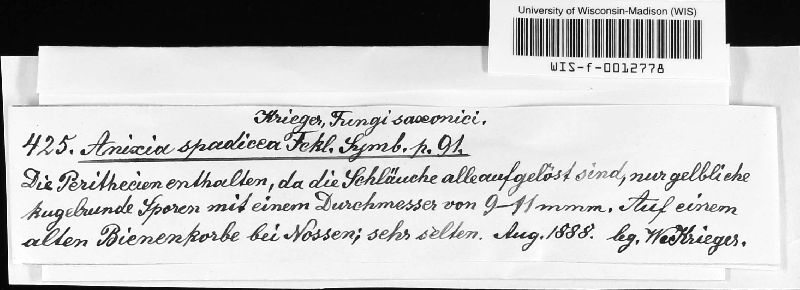 University of Wisconsin-Madison (WIS)
WIS-f-0012778
Krieger, Fungi saxonici.
425. Anixia spadicea Fckl. Symb. p. 91.
Die Perithecien enthalten, da die Schläuche alle aufgelöst sind, nur gelbliche
kugelrunde Sporen mit einem Durchmesser von 9–11 mmm. Auf einem
alten Bienenkorbe bei Nossen; sehr selten. Aug. 1888. lg. W. Krieger.